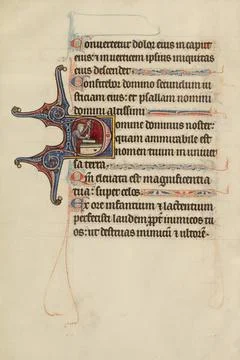 Convertetur dolor eius in caput
eius: et in verticem ipsius iniquitas
eius descendet
Confitebor domino secundum iu
sticiam eius: et psallam nomini
domini altissimi
Domine dominus noster:
quam ammirabile est
nomen tuum in univer
sa terra
Qm elevata est magnificentia
tua: super celos
Ex ore infantium et lactentium
perfecisti laudem propter inimicos tu
os: ut destruas inimicum et ultore